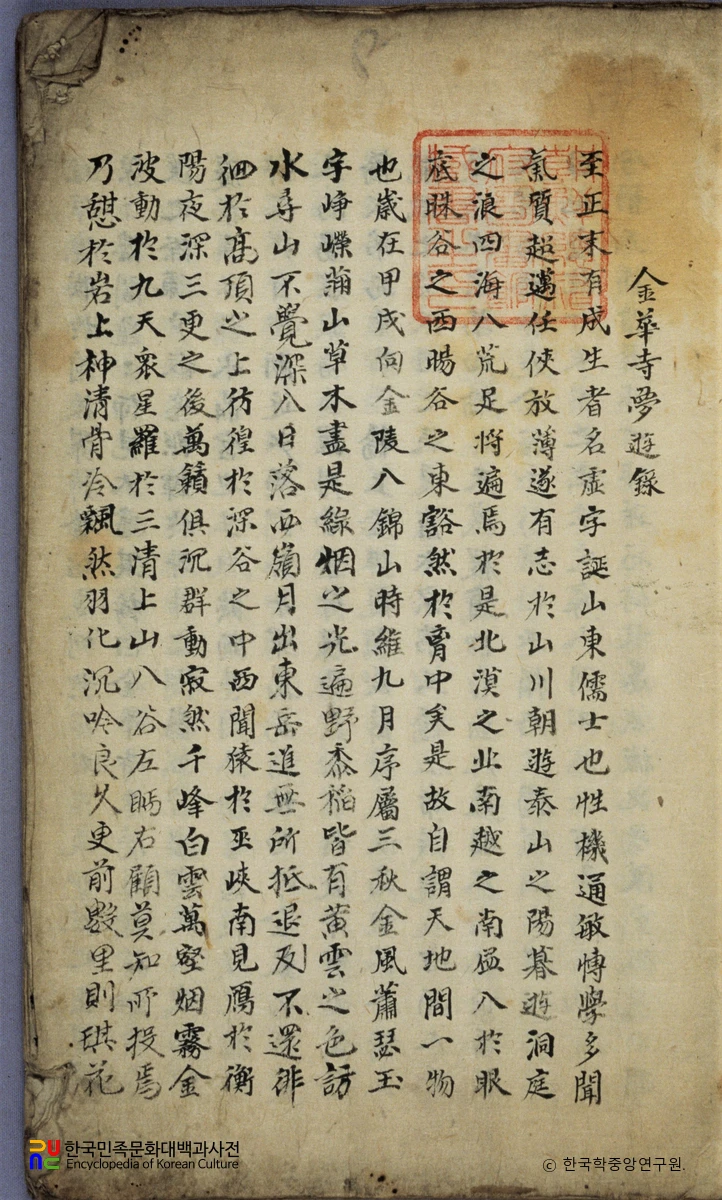 金華寺夢遊錄
至正末有成生者名虛字誕山東儒士也性機通敏博學多聞
氣質超邁任俠放薄遂有志於山川朝遊泰山之陽暮遊洞庭
之浪四海八荒足將遍焉於是北漠之北南越之南並入於眼
底昧谷之西暘谷之東豁然於胷中矣是故自謂天地間一物
也歲在甲戌向金陵入錦山時維九月序屬三秋金風蕭瑟玉
宇崢嶸滿山草木盡是綠烟之光遍野黍稻皆有黃雲之色訪
水尋山不覺深入日落西嶺月出東岳進無所抵退及不還徘
徊於高頂之上彷徨於深谷之中西聞猿於巫峽南見鴈於衡
陽夜深三更之後萬籟俱沉群動寂然千峰白雲萬壑烟霧金
波動於九天衆星羅於三清上山入谷左眄右顧莫知所投焉
乃憩於岩上神清骨冷飄然羽化沉吟良久更前數里則琪花
한국민족문화대백과사전
Encyclopedia of Korean Culture
ⓒ 한국학중앙연구원.